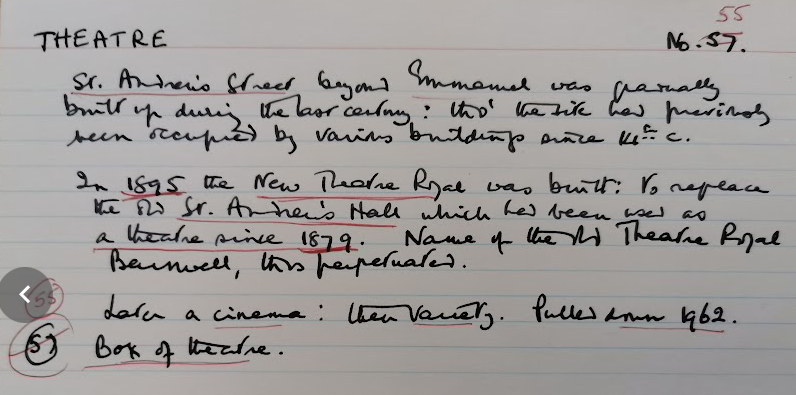 55
THEATRE No. 57.
St. Andrew's Street beyond Emmanuel was gradually
built up during the last century: tho' the site had previously
been occupied by various buildings since 14th c.
In 1895 the New Theatre Royal was built: to replace
the old St. Andrew's Hall which had been used as
a theatre since 1879. Name of the old Theatre Royal
Barnwell, thus perpetuated.
55
Later a cinema: then Variety. Pulled down 1962.
57 Box of theatre.